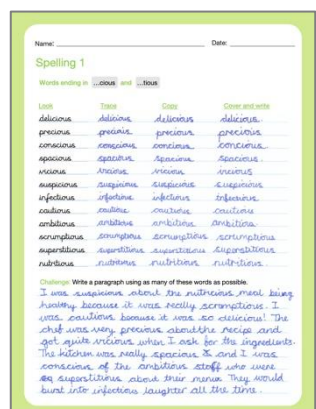 Name: Date:
Spelling 1
Words ending in ...cious and ...tious
Look Trace Copy Cover and write
delicious delicious delicious delicious
precious precious precious precious
conscious conscious concious concious
spacious spacious spacious spacious
vicious vicious vicious vicious
suspicious suspicious suspicious suspicious
infectious infectious infectious infectious
cautious cautious cautious cautious
ambitious ambitious ambitious ambitious
scrumptious scrumptious scrumptious scrumptious
superstitious superstitious superstitious superstitious
nutritious nutritious nutritious nutritious
Challenge Write a paragraph using as many of these words as possible.
I was suspicious about the nutricious meal being
healthy because it was really scromptious. I
was cautious because it was so delicious! The
chef was very precious about the recipe and
got quite vricious when I ask for the ingredients.
The kitchen was really spacious & and I was
conscious of the ambitious staff who were
superstitious about their menus They would
burst into infectious laughter all the time.